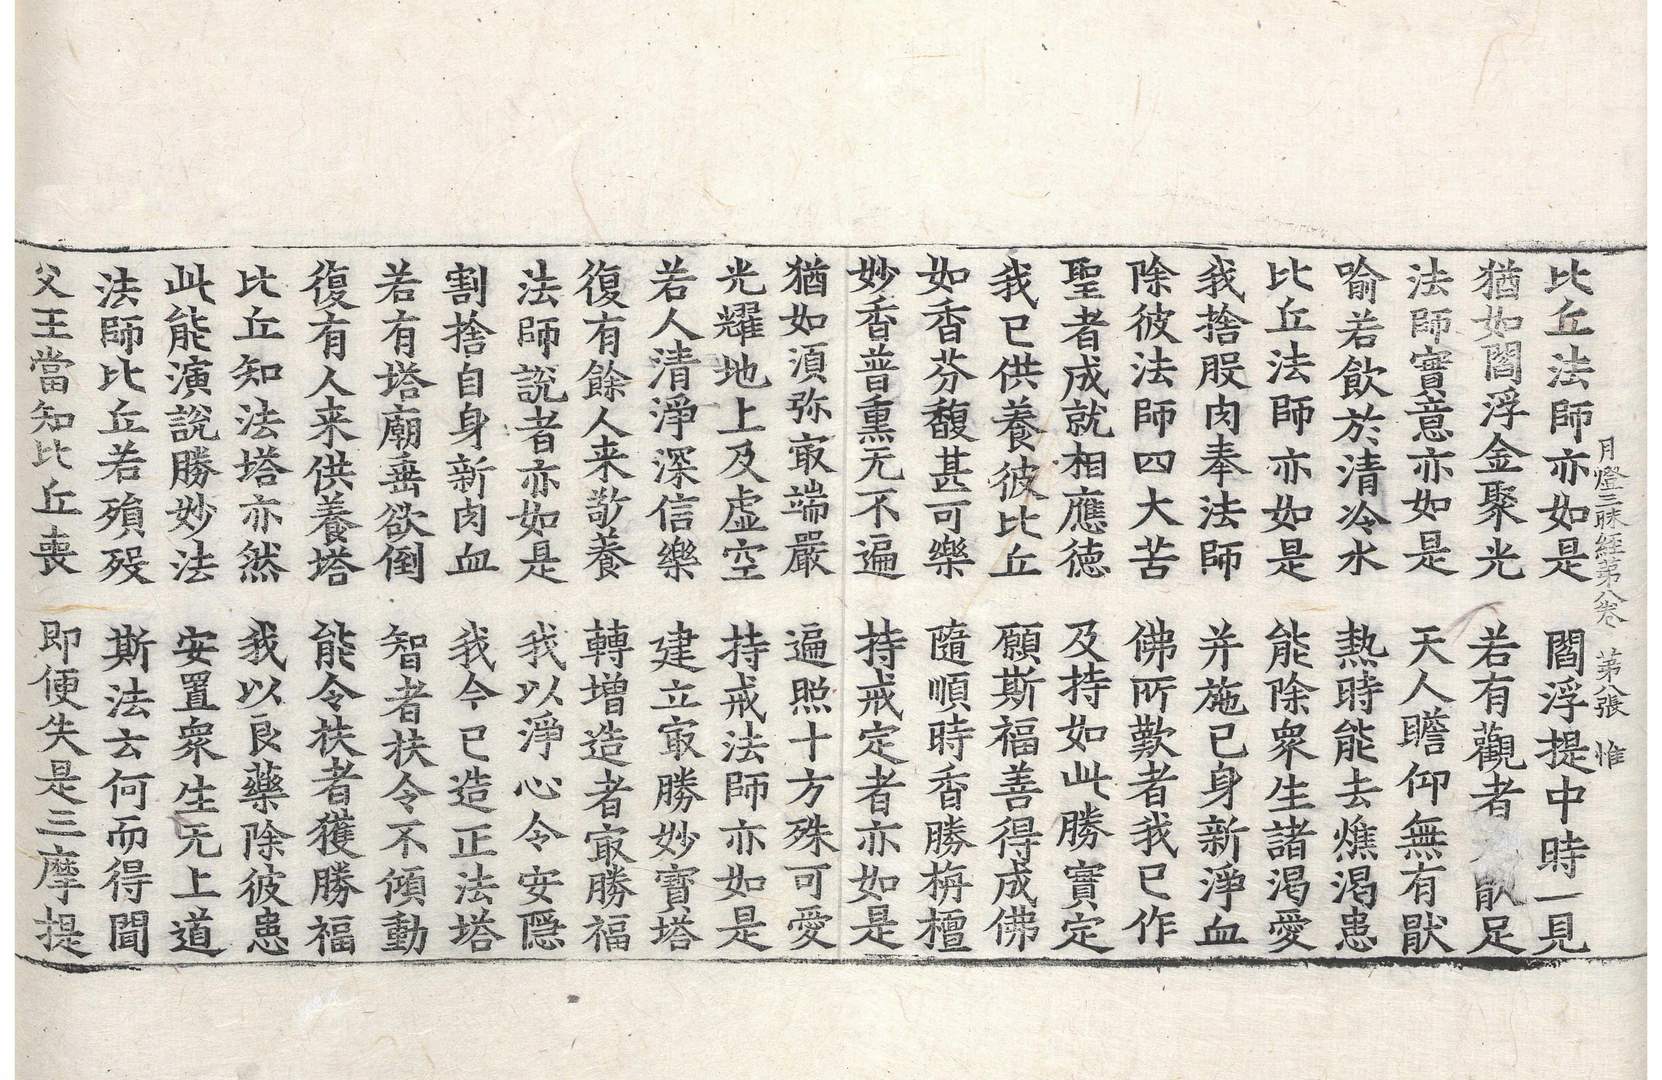 月燈三昧経第八巻　第八張　惟
比丘法師亦如是　閻浮提中時一見
猶如閻浮金聚光　若有觀者　猒足
法師寶意亦如是　天人瞻仰無有猒
喻若飲於清冷水　熱時能去燋渇患
比丘法師亦如是　能除衆生諸渇愛
我捨股肉奉法師　并施已身新淨血
除彼法師四大苦　佛所歎者我已作
聖者成就相應德　及持如此勝寶定
我已供養彼比丘　願斯福善得成佛
如香芬馥甚可樂　隨順時香勝栴檀
妙香普熏无不遍　持戒定者亦如是
猶如須弥㝡端嚴　遍照十方殊可愛
光耀地上及虛空　持戒法師亦如是
若人清淨深信樂　建立㝡勝妙寶塔
復有餘人来敬養　轉增造者㝡勝福
法師說者亦如是　我以淨心令安隱
割捨自身新肉血　我今已造正法塔
若有塔廟垂欲倒　智者扶令不傾動
復有人来供養塔　能令扶者獲勝福
比丘知法塔亦然　我以良藥除彼患
此能演說勝妙法　安置衆生无上道
法師比丘若殞歿　斯法云何而得聞
父王當知比丘喪　即便失是三摩提